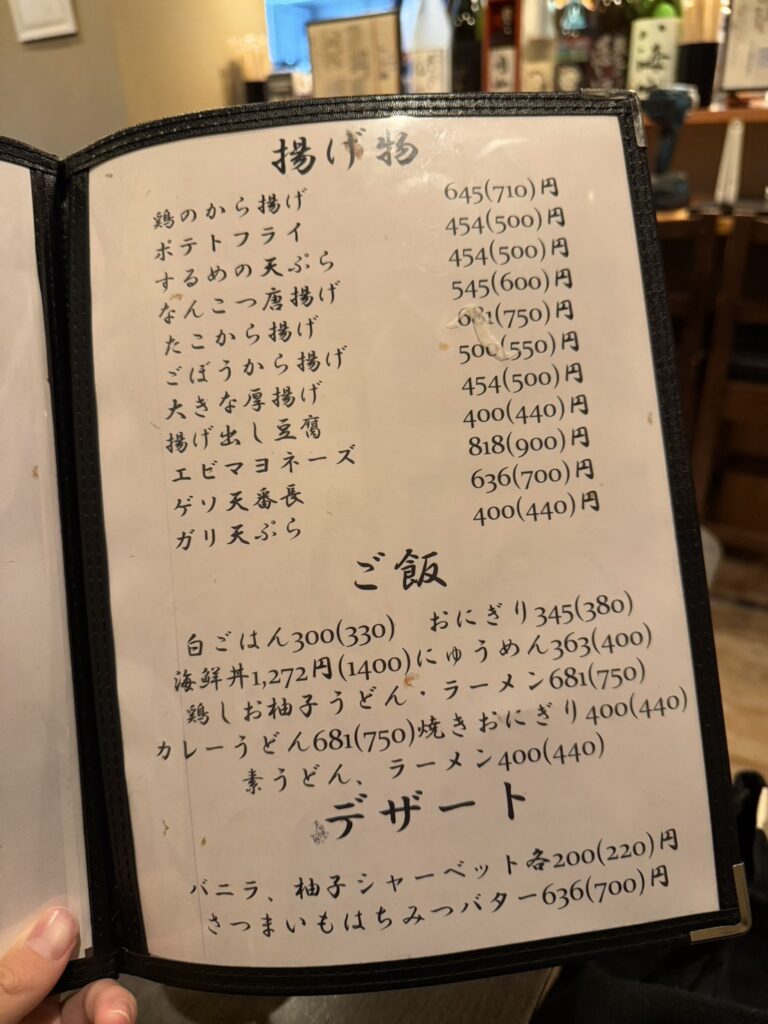 揚げ物
鶏のから揚げ 645(710)円
ポテトフライ 454(500)円
するめの天ぷら 454(500)円
なんこつ唐揚げ 545(600)円
たこから揚げ 681(750)円
ごぼうから揚げ 500(550)円
大きな厚揚げ 454(500)円
揚げ出し豆腐 400(440)円
エビマヨネーズ 818(900)円
ゲソ天番長 636(700)円
ガリ天ぷら 400(440)円
ご飯
白ごはん300(330) おにぎり345(380)
海鮮丼1,272円(1400)にゅうめん363(400)
鶏しお柚子うどん・ラーメン681(750)
カレーうどん681(750)焼きおにぎり400(440)
素うどん、ラーメン400(440)
デザート
バニラ、柚子シャーベット各200(220)円
さつまいもはちみつバター636(700)円